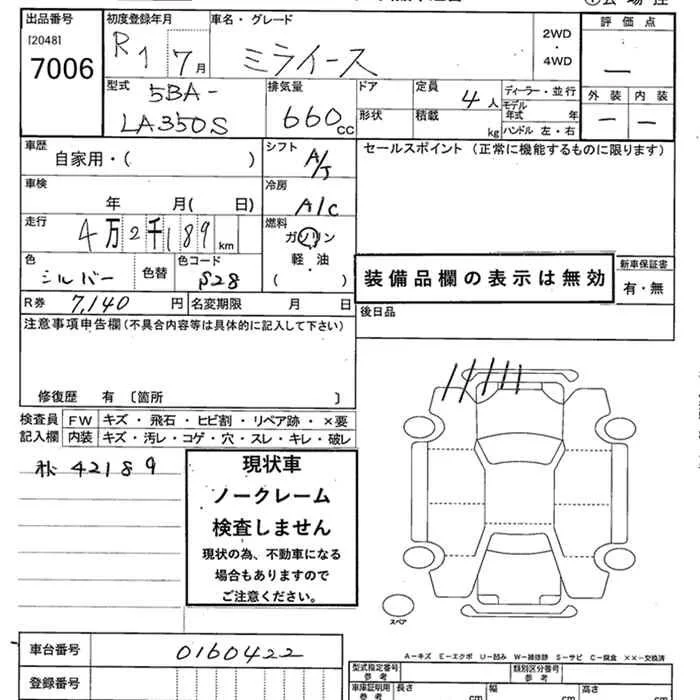 出品番号
[2048]
7006
初度登録年月
R1 7月
車名・グレード
ミライース
2WD
・
4WD
評価点
—
型式
5BA-
LA350S
排気量
660 CC
ドア
形状
定員
4人
積載
kg
ディーラー・並行
モデル
年式 年
ハンドル 左・右
外装 内装
— —
車歴
自家用・( )
シフト
A/T
セールスポイント(正常に機能するものに限ります)
車検
年 月( 日)
冷房
A/C
走行
4万2千189 km
燃料
ガソリン
・
軽 油
( )
色
シルバー
色替
色コード
S28
装備品欄の表示は無効
新車保証書
有・無
R券 7,140 円
名変期限 月 日
後日品
注意事項申告欄(不具合内容等は具体的に記入して下さい)
修復歴 有 〔箇所 〕
検査員
記入欄
FW キズ・飛石・ヒビ割・リペア跡・×要
内装 キズ・汚レ・コゲ・穴・スレ・キレ・破レ
42189
現状車
ノークレーム
検査しません
現状の為、不動車になる
場合もありますので
ご注意ください。
スペア
A－キズ E－エクボ U－凹み W－補修跡 S－サビ C－腐食 ××－交換済
車台番号 0160422
登録番号
型式指定番号
参考
類別区分番号
参考
車庫証明用
参考
長さ cm
幅 cm
高さ cm